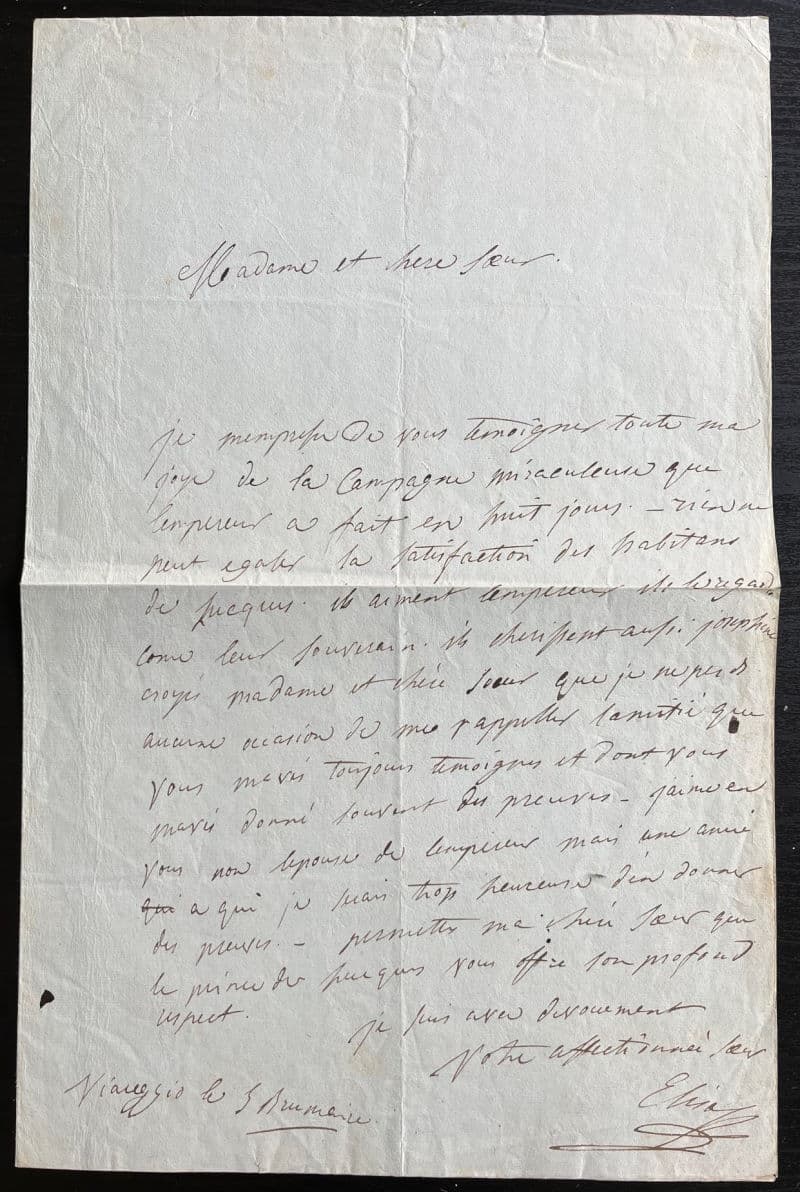 Madame et chere sœur.
je mempresse de vous temoigner toute ma
joye de la Campagne miraculeuse que
lempereur a fait en huit jours. — rien ne
peut egaler la satisfaction des habitans
de Lucques. ils aiment lempereur ils le regarde
come leur souverain. ils cherissent aussi josephine
croyés madame et chére sœur que je ne perds
aucune occasion de me rappeller lamitié que
vous mavés toujours temoignes et dont vous
mavés donné souvent des preuves — jaime en
vous non lepouse de lempereur mais une amie
qui a qui je serais trop heureuse dén donner
des preuves. — permettes ma chére sœur que
le prince de Lucques vous offre son profond
respect.
je suis avec devouement
Votre affectionnée sœur
Elisa
Viareggio le 5 Brumaire.